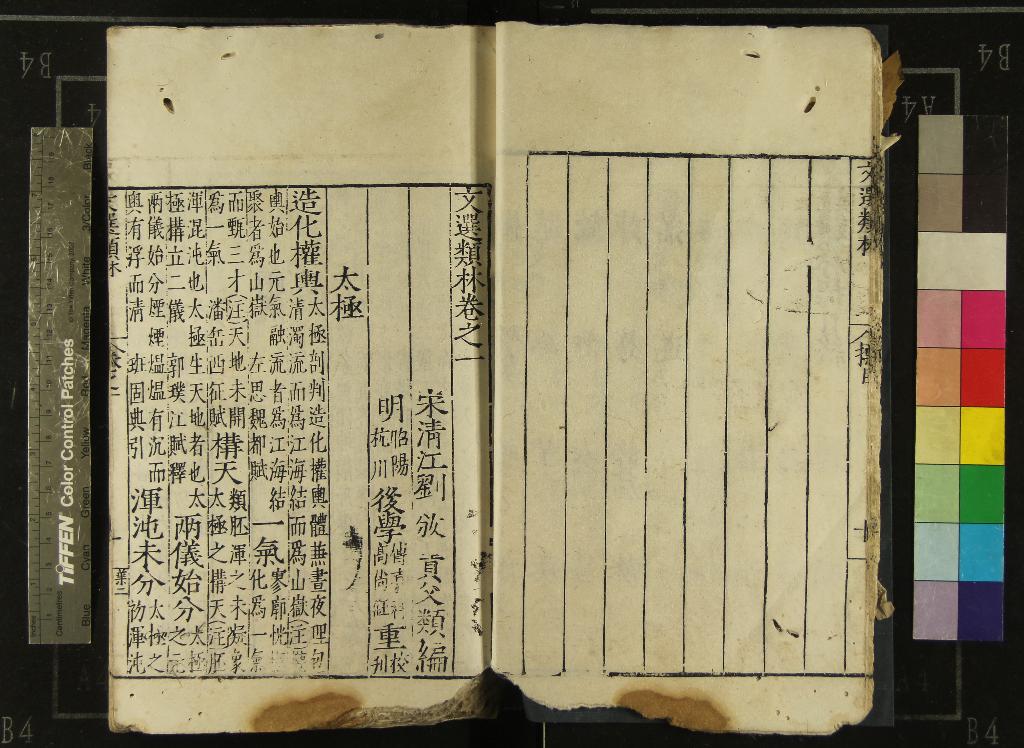 文選類林卷之一
宋清江劉攽貢父類編
明 臨陽 杭川 後學 高尚 重 校 刊
太極
造化權輿 太極剖判造化權輿體兼晝夜理包
清濁流而爲江海結而爲山嶽
輿始也元氣融流者爲江海結
聚者爲山嶽 左思魏都賦 一氣 寥廓
化爲一氣
而甄三才(注)天地未開 構天 類胚渾之未凝象
太極之構天(注)胚
爲一氣 潘岳西征賦
渾混沌也太極生天地者也太 兩儀始分 太極
之元
極構立二儀 郭璞江賦釋
兩儀始分煙煙熅熅有沉而 渾沌未分 太極之
初渾沌
奥有浮而清 班固典引
文選類林
卷之一
文選類林
TIFFEN Color Control Patches
Centimetres
Inches
Blue
Cyan
Green
Yellow
Red
Magenta
White
3/Color
Black
B4
B4
B4
B4
A4
A4